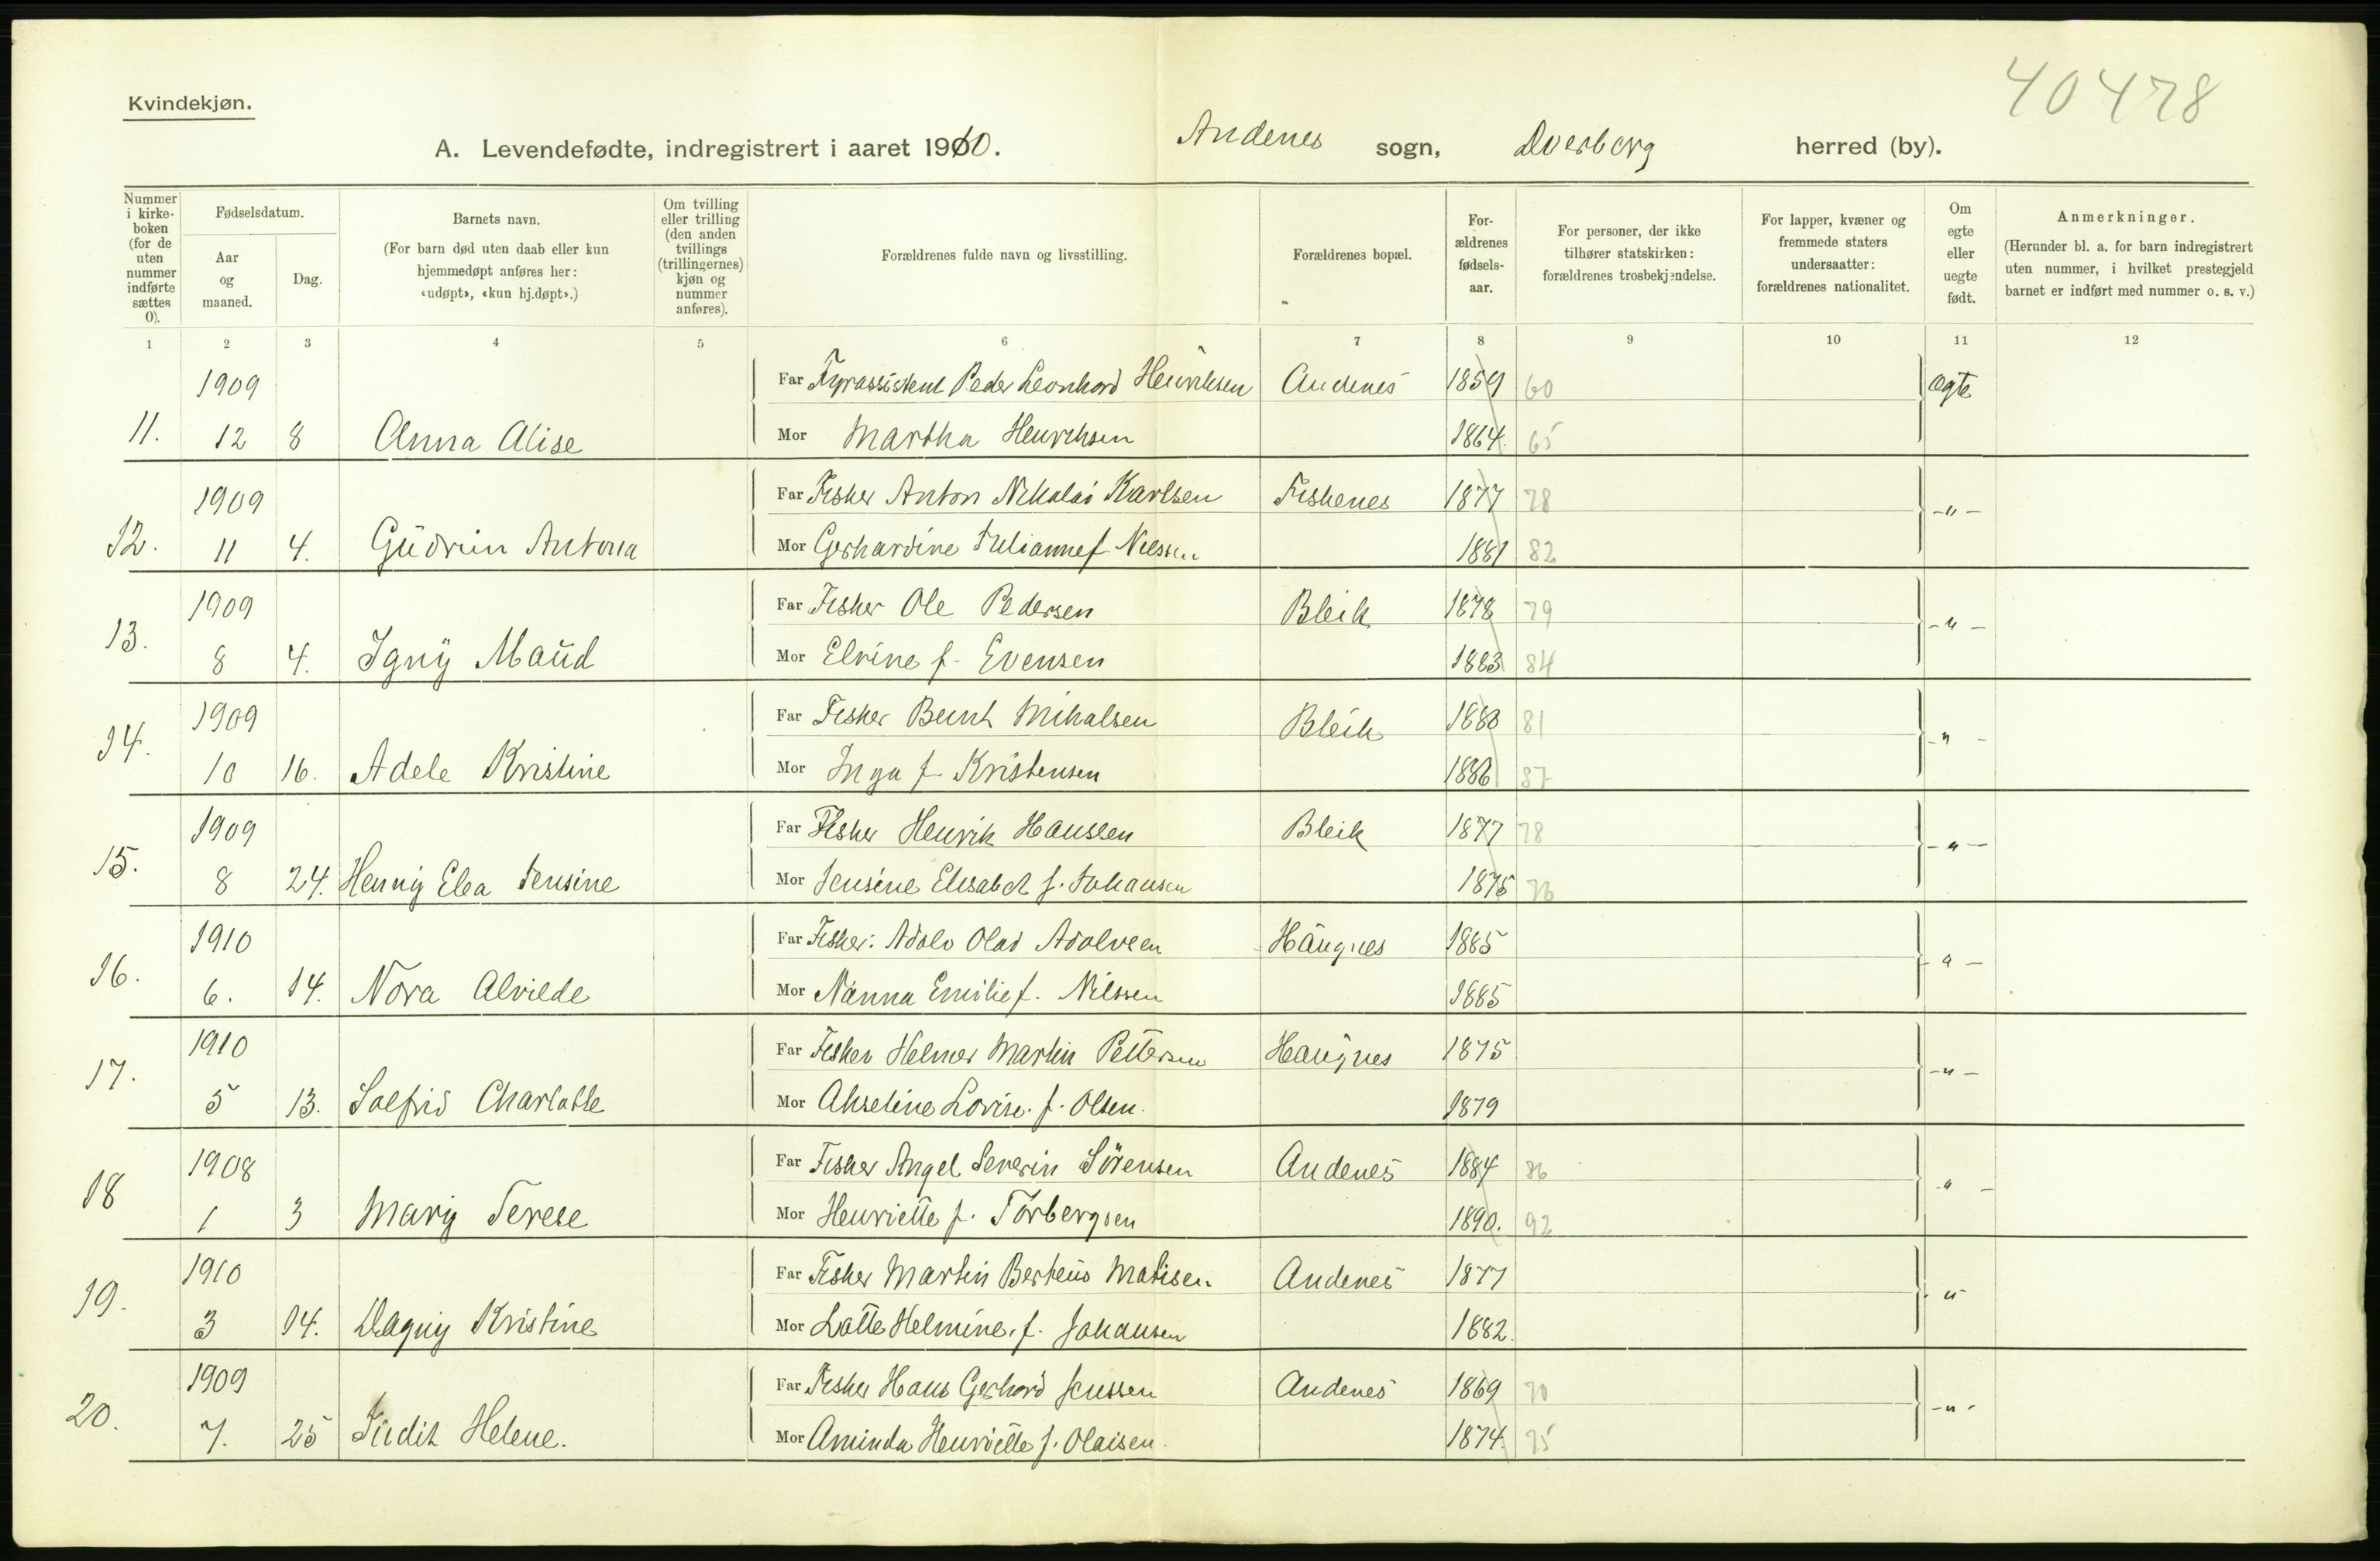 40478
Kvindekjøn.
A. Levendefødte, indregistrert i aaret 1910. Andenes sogn, Dverberg herred (by).
Nummer i kirke-boken (for de uten nummer indførte sættes 0).
Fødselsdatum.
Aar og maaned.
Dag.
Barnets navn.
(For barn død uten daab eller kun hjemmedøpt anføres her: «udøpt», «kun hj.døpt».)
Om tvilling eller trilling (den anden tvillings (trillingernes) kjøn og nummer anføres).
Forældrenes fulde navn og livsstilling.
Forældrenes bopæl.
For-ældrenes fødsels-aar.
For personer, der ikke tilhører statskirken: forældrenes trosbekjendelse.
For lapper, kvæner og fremmede staters undersaatter: forældrenes nationalitet.
Om egte eller uegte født.
Anmerkninger.
(Herunder bl. a. for barn indregistrert uten nummer, i hvilket prestegjeld barnet er indført med nummer o. s. v.)
1 2 3 4 5 6 7 8 9 10 11 12
1909 Far Fyrassistent Peder Leonhard Henriksen Andenes 1859 60 ægte
11. 12 8 Anna Alise Mor Martha Henriksen 1864. 65
1909 Far Fisker Anton Nikolai Karlsen Fiskenes 1877 78 -"-
12. 11 4. Gudrun Antona Mor Gerhardine Julianne f. Nilssen 1881 82
1909 Far Fisker Ole Pedersen Bleik 1878 79 -"-
13. 8 4. Igny Maud Mor Elvine f. Evensen 1883 84
1909 Far Fisker Bernt Mikalsen Bleik 1880 81 -"-
14. 10 16. Adele Kristine Mor Inga f. Kristensen 1886 87
1909 Far Fisker Henrik Hanssen Bleik 1877 78 -"-
15. 8 24. Henny Elea Jensine Mor Jensine Elisabet f. Johansen 1875 76
1910 Far Fisker: Adolv Olai Adolvsen Haugnes 1885 -"-
16. 6. 14. Nora Alvilde Mor Nanna Emilie f. Nilssen 1885
1910 Far Fisker Helmer Martin Pettersen Haugnes 1875 -"-
17. 5 13. Solfrid Charlotte Mor Akseline Lovise. f. Olsen. 1879
1908 Far Fisker Angel Severin Sörensen Andenes 1884 86 " -
18 1 3 Mary Terese Mor Henriette f. Torbergsen 1890. 92
1910 Far Fisker Martin Berteus Matisen Andenes 1877 "
19. 3 14. Dagny Kristine Mor Lotte Helmine. f. Johansen 1882.
1909 Far Fisker Hans Gerhard Jenssen Andenes 1869 70 -"-
20. 7. 25 Judit Helene. Mor Aminda Henriette f. Olaisen. 1874. 75